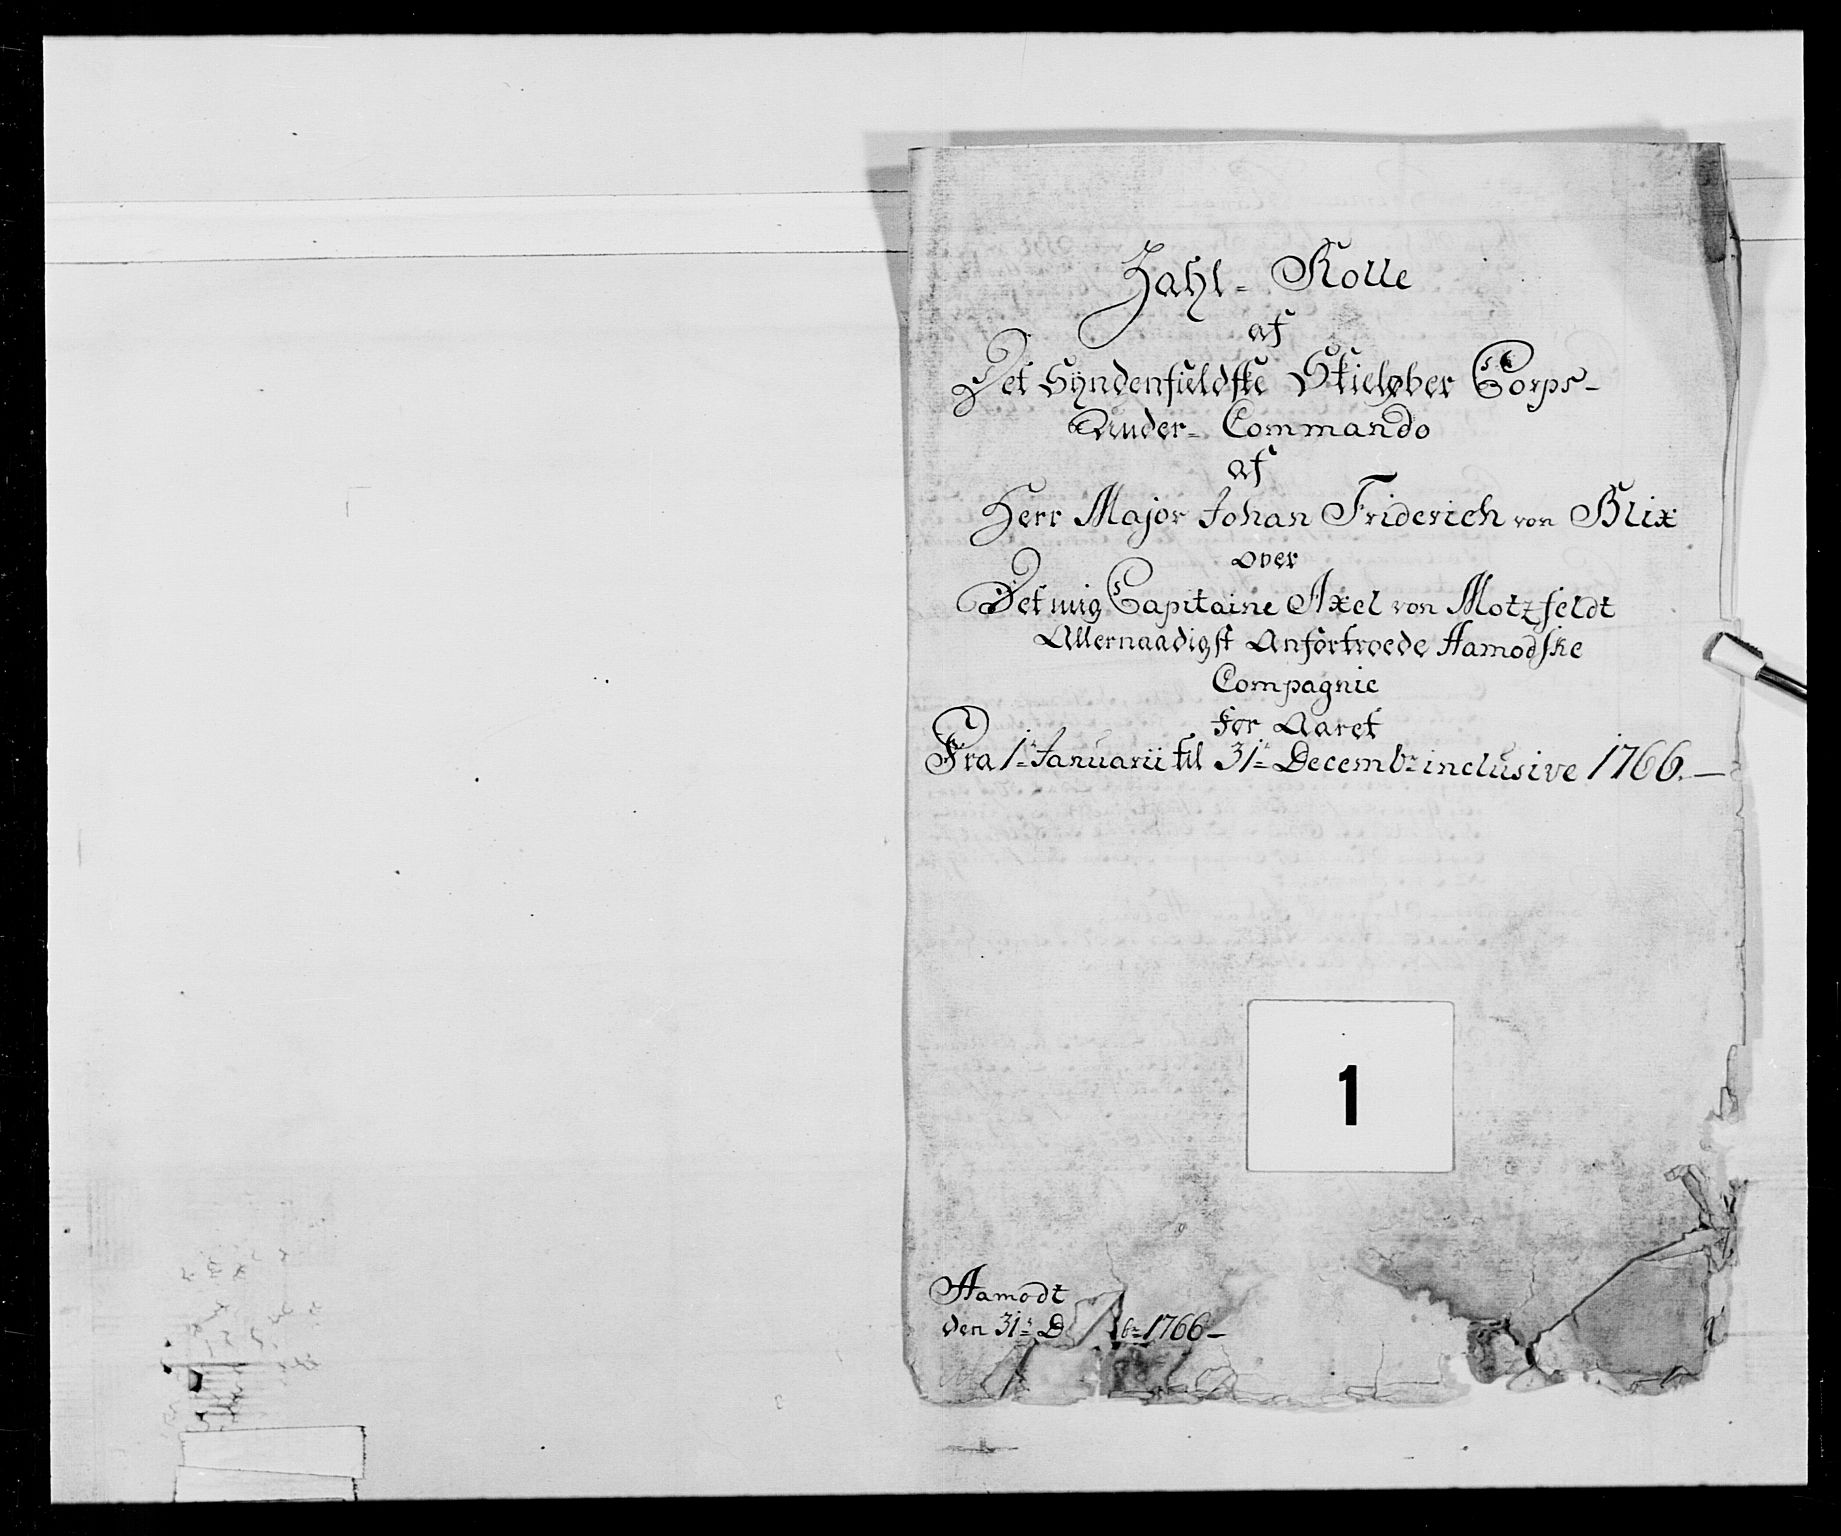 Zahl- Rolle
af
Det Syndenfieldske Skieløber Corps-
Under- Commando
af
Herr Major Johan Friderich von Blix
over
Det mig Capitaine Axel von Motzfeldt
Allernaadigst Anfortroede Aamodske
Compagnie
for Aaret
Fra 1- Januarii til 31- Decembr inclusive 1766.
1
Aamodt
den 31- D br 1766-